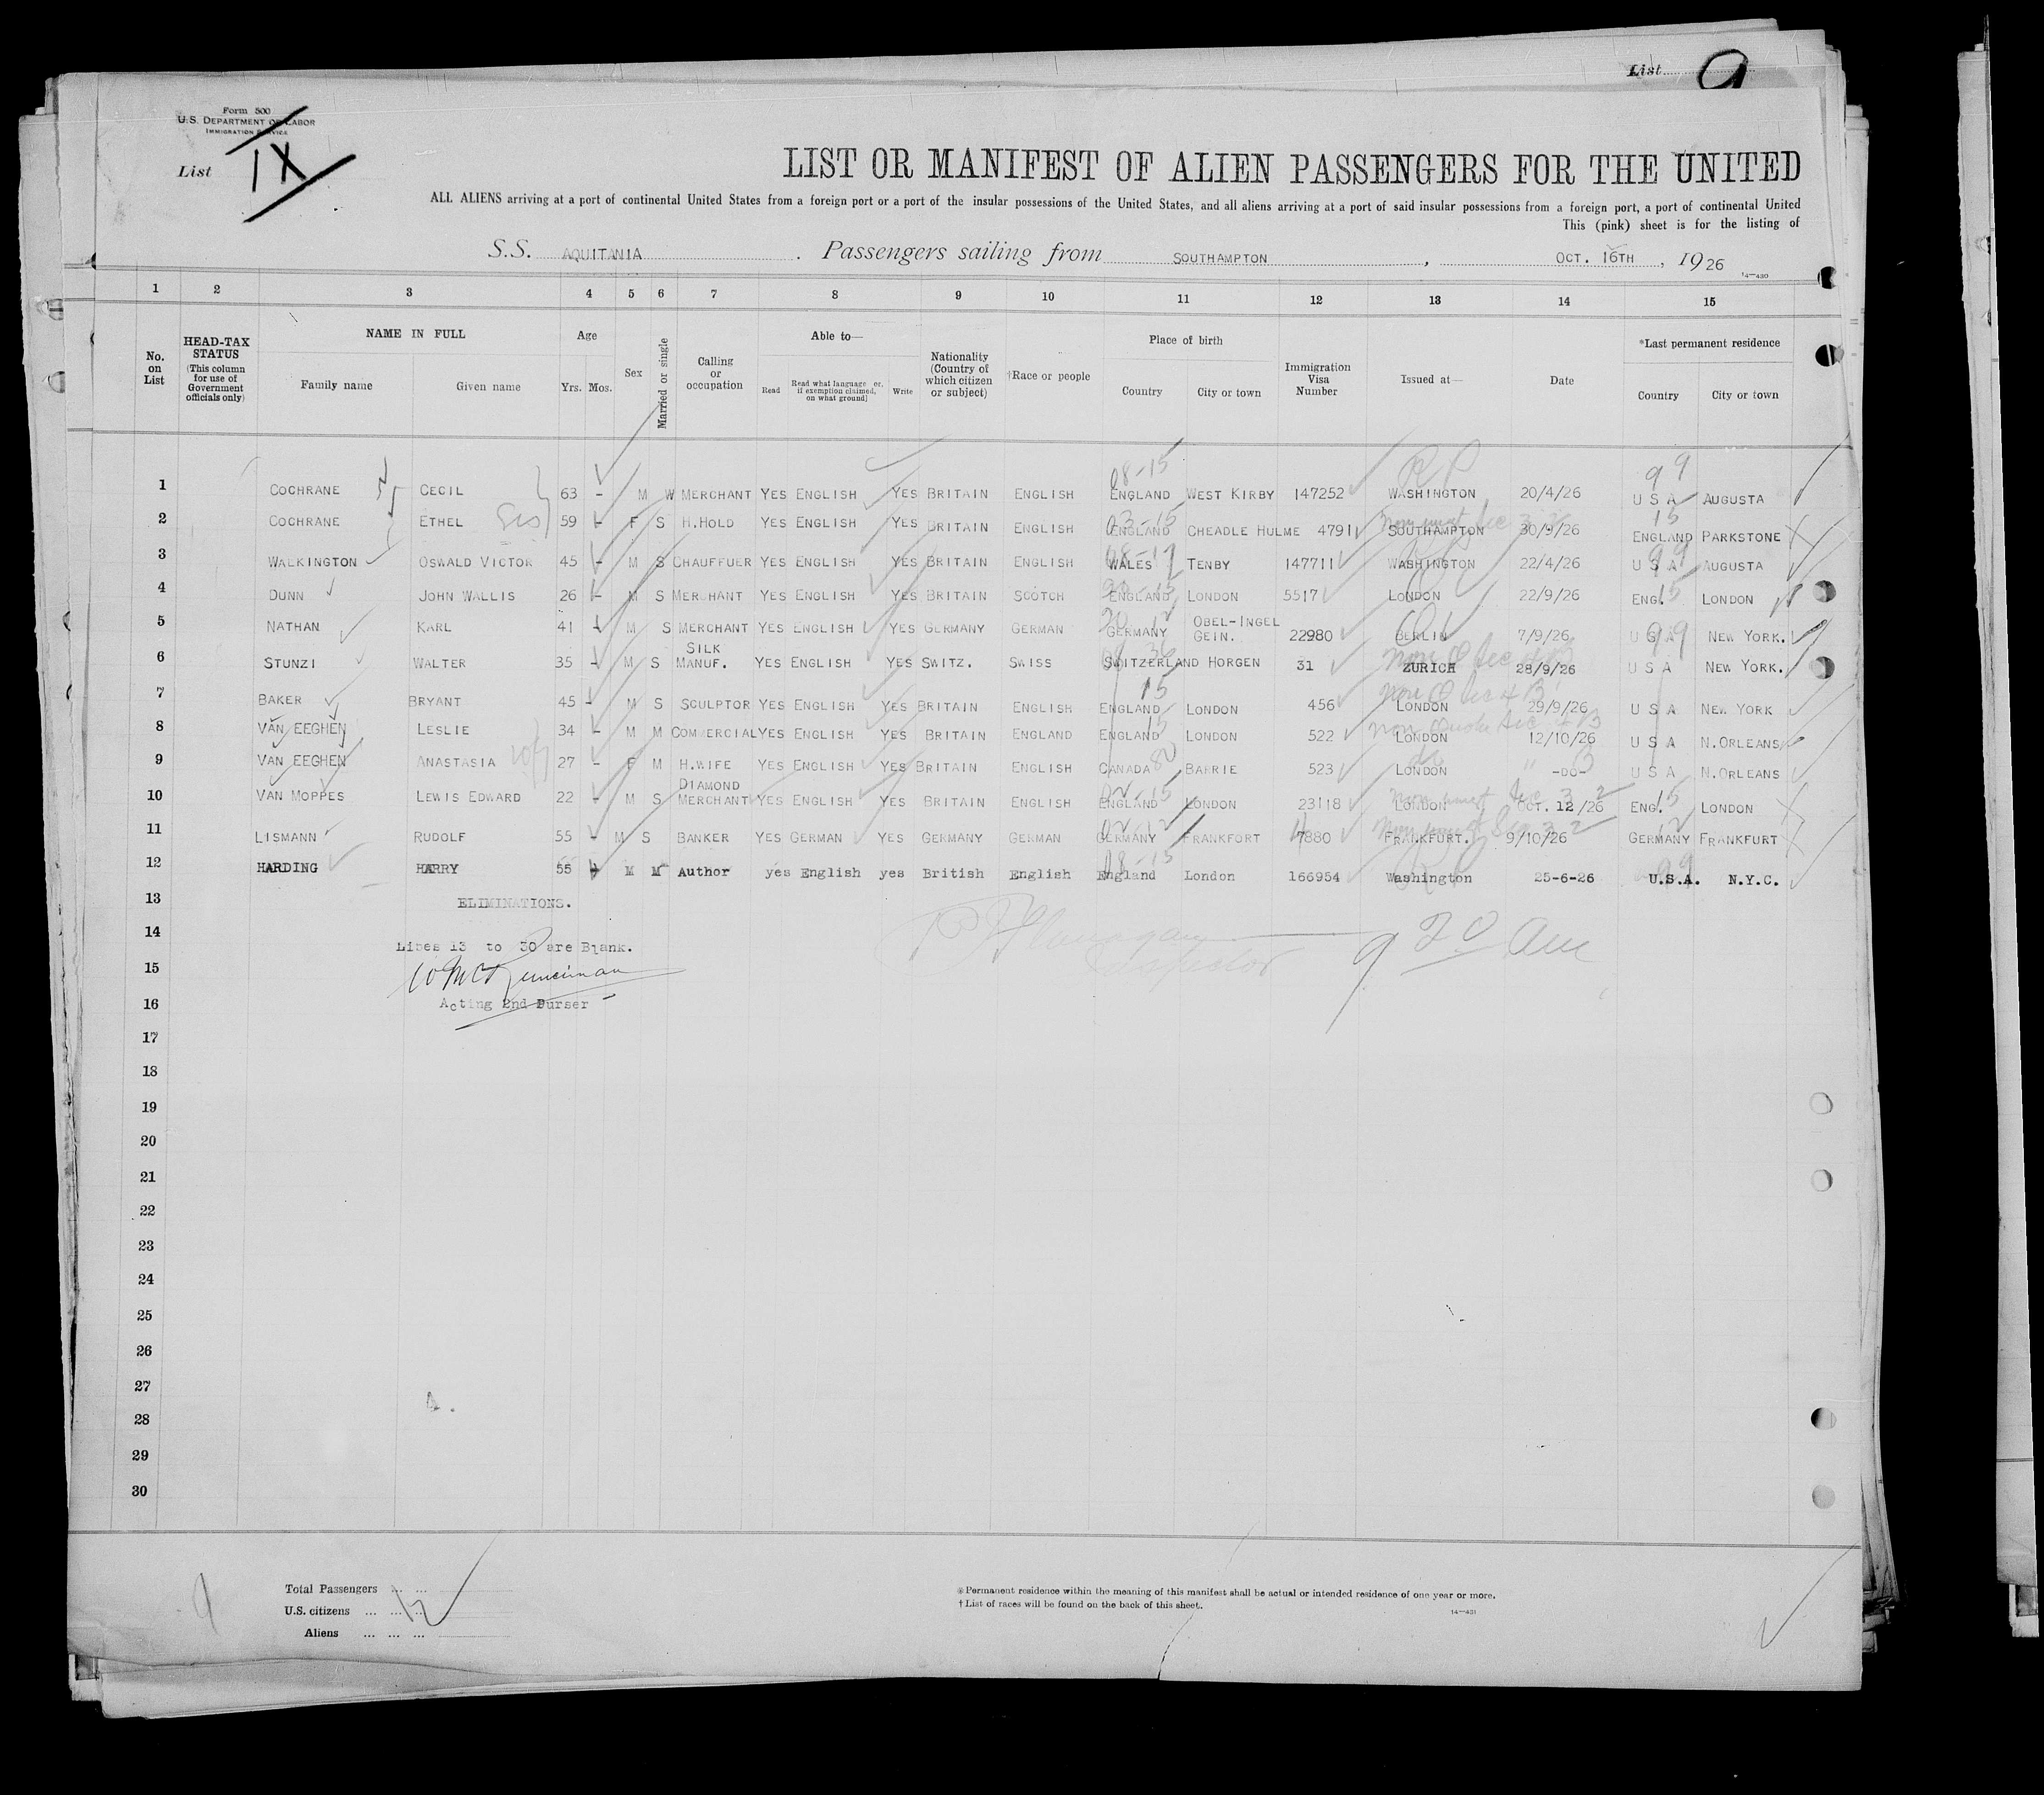 List 9
Form 500
U.S. DEPARTMENT OF LABOR
IMMIGRATION SERVICE
List IX
LIST OR MANIFEST OF ALIEN PASSENGERS FOR THE UNITED
ALL ALIENS arriving at a port of continental United States from a foreign port or a port of the insular possessions of the United States, and all aliens arriving at a port of said insular possessions from a foreign port, a port of continental United
This (pink) sheet is for the listing of
S.S. AQUITANIA. Passengers sailing from SOUTHAMPTON, OCT. 16TH, 1926
14—430
1 2 3 4 5 6 7 8 9 10 11 12 13 14 15
No. on List
HEAD-TAX STATUS (This column for use of Government officials only)
NAME IN FULL
Family name Given name
Age
Yrs. Mos.
Sex
Married or single
Calling or occupation
Able to—
Read
Read what language or, if exemption claimed, on what ground)
Write
Nationality (Country of which citizen or subject)
†Race or people
Place of birth
Country City or town
Immigration Visa Number
Issued at—
Date
*Last permanent residence
Country City or town
1 COCHRANE CECIL 63 - M W MERCHANT YES ENGLISH YES BRITAIN ENGLISH 08-15 ENGLAND WEST KIRBY 147252 RP WASHINGTON 20/4/26 99 U S A AUGUSTA
2 COCHRANE ETHEL Sis 59 - F S H.HOLD YES ENGLISH YES BRITAIN ENGLISH 03-15 ENGLAND CHEADLE HULME 47911 SOUTHAMPTON 30/9/26 15 ENGLAND PARKSTONE
3 WALKINGTON OSWALD VICTOR 45 - M S CHAUFFUER YES ENGLISH YES BRITAIN ENGLISH WALES TENBY 147711 WASHINGTON 22/4/26 99 U S A AUGUSTA
4 DUNN JOHN WALLIS 26 - M S MERCHANT YES ENGLISH YES BRITAIN SCOTCH ENGLAND LONDON 5517 LONDON 22/9/26 ENG. 15 LONDON
5 NATHAN KARL 41 - M S MERCHANT YES ENGLISH YES GERMANY GERMAN GERMANY OBEL-INGEL GEIN. 22980 BERLIN 7/9/26 99 U S A NEW YORK.
6 STUNZI WALTER 35 - M S SILK MANUF. YES ENGLISH YES SWITZ. SWISS 36 SWITZERLAND HORGEN 31 ZURICH 28/9/26 U S A NEW YORK.
7 BAKER BRYANT 45 - M S SCULPTOR YES ENGLISH YES BRITAIN ENGLISH 15 ENGLAND LONDON 456 LONDON 29/9/26 U S A NEW YORK
8 VAN EEGHEN LESLIE 34 - M M COMMERCIAL YES ENGLISH YES BRITAIN ENGLAND 15 ENGLAND LONDON 522 LONDON 12/10/26 U S A N.ORLEANS
9 VAN EEGHEN ANASTASIA 27 - F M H.WIFE YES ENGLISH YES BRITAIN ENGLISH CANADA 80 BARRIE 523 LONDON -DO- U S A N.ORLEANS
10 VAN MOPPES LEWIS EDWARD 22 - M S DIAMOND MERCHANT YES ENGLISH YES BRITAIN ENGLISH ENGLAND LONDON 23118 LONDON OCT. 12/26 ENG. 15 LONDON
11 LISMANN RUDOLF 55 - M S BANKER YES GERMAN YES GERMANY GERMAN GERMANY FRANKFORT 7880 FRANKFURT. 9/10/26 GERMANY FRANKFURT
12 HARDING HARRY 55 M M Author yes English yes British English 08-15 England London 166954 Washington 25-6-26 U.S.A. N.Y.C.
13 ELIMINATIONS.
14 Lines 13 to 30 are Blank.
15
16 Acting 2nd Purser
Inspector
9 20 am
17
18
19
20
21
22
23
24
25
26
27
28
29
30
9
Total Passengers ... ...
U.S. citizens ... ... ... 12
Aliens ... ... ...
*Permanent residence within the meaning of this manifest shall be actual or intended residence of one year or more.
†List of races will be found on the back of this sheet.
14—431